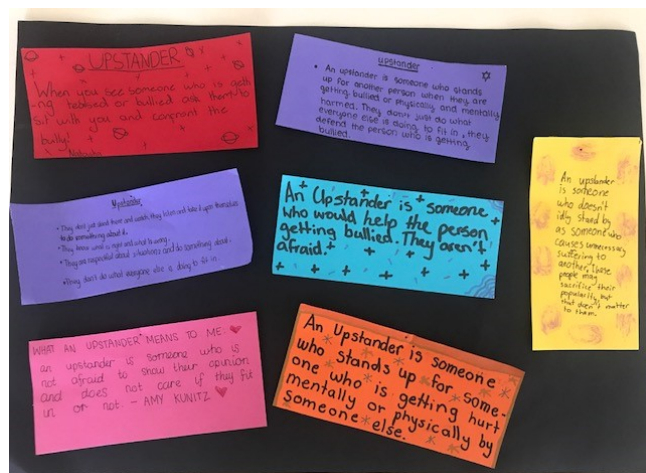 UPSTANDER
When you see someone who is gett
-ing teased or bullied ask them to
sit with you and confront the
bully!
upstander
• An upstander is someone who stands
up for another person when they are
getting bullied or physically and mentally
harmed. They don't just do what
everyone else is doing to fit in, they
defend the person who is getting
bullied.
Upstander
• They don't just stand there and watch, they listen and take it upon themselves
to do something about it.
• They know what is right and what is wrong.
• They are respectful about situations and do something about.
• They don't do what everyone else is doing to fit in.
An Upstander is someone
who would help the person
getting bullied. They aren't
afraid.
An upstander
is someone
who doesn't
idly stand by
as someone who
causes unnecessary
suffering to
another, these
people may
sacrifice their
popularity, but
that doesn't matter
to them.
WHAT AN UPSTANDER MEANS TO ME.
an upstander is someone who is
not afraid to show their opinion
and does not care if they fit
in or not. - AMY KUNITZ
An Upstander is someone
who stands up for some-
one who is getting hurt
mentally or physically by
someone else.